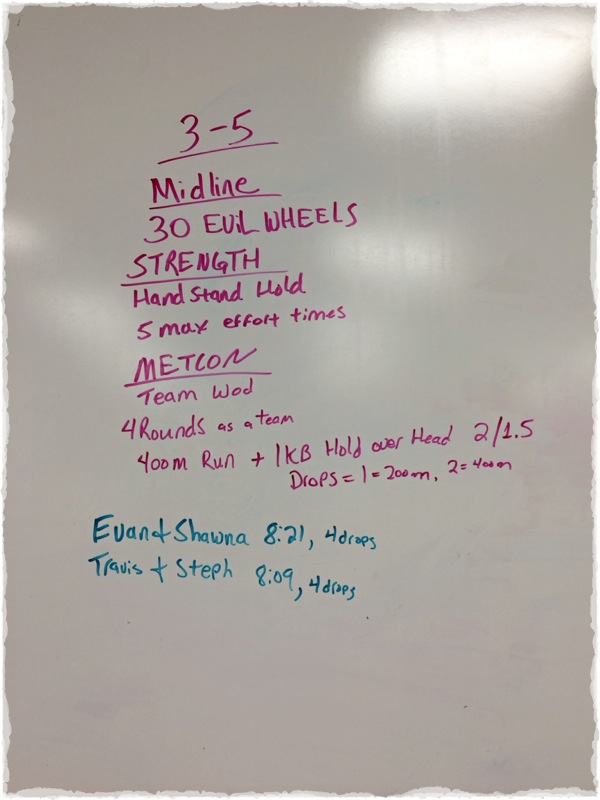 3-5
Midline
30 EVIL WHEELS
STRENGTH
Hand Stand Hold
5 max effort times
METCON
Team Wod
4 Rounds as a team
400m Run + 1 KB Hold over Head 2/1.5
Drops = 1 = 200m, 2 = 400m
Evan + Shawna 8:21, 4 drops
Travis + Steph 8:09, 4 drops